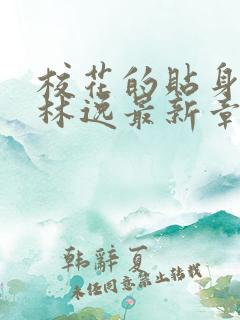 校花的贴身
林逸最新章
韩辞夏
未经同意禁止转载